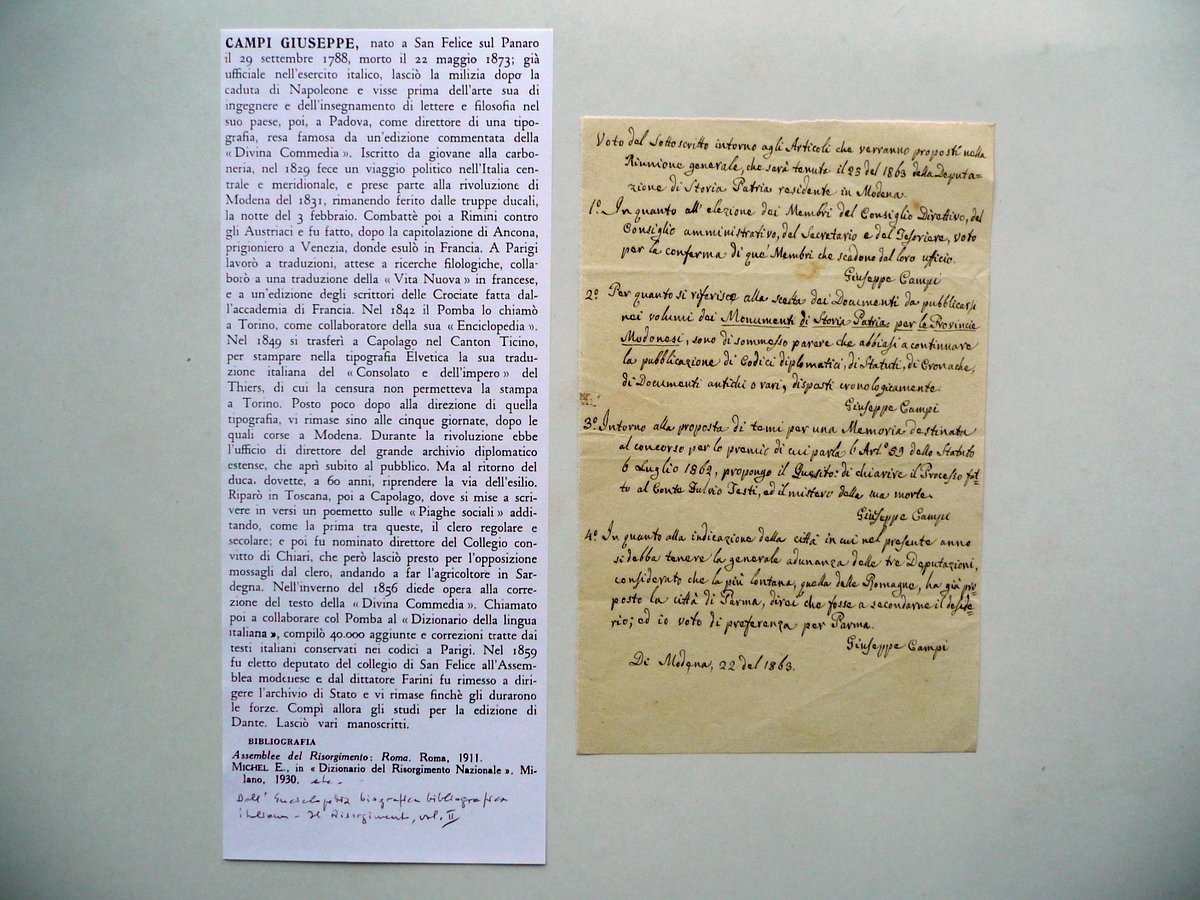 CAMPI GIUSEPPE, nato a San Felice sul Panaro
il 29 settembre 1788, morto il 22 maggio 1873; già
ufficiale nell'esercito italico, lasciò la milizia dopo la
caduta di Napoleone e visse prima dell'arte sua di
ingegnere e dell'insegnamento di lettere e filosofia nel
suo paese, poi, a Padova, come direttore di una tipo-
grafia, resa famosa da un'edizione commentata della
« Divina Commedia ». Iscritto da giovane alla carbo-
neria, nel 1829 fece un viaggio politico nell'Italia cen-
trale e meridionale, e prese parte alla rivoluzione di
Modena del 1831, rimanendo ferito dalle truppe ducali,
la notte del 3 febbraio. Combattè poi a Rimini contro
gli Austriaci e fu fatto, dopo la capitolazione di Ancona,
prigioniero a Venezia, donde esulò in Francia. A Parigi
lavorò a traduzioni, attese a ricerche filologiche, colla-
borò a una traduzione della « Vita Nuova » in francese,
e a un'edizione degli scrittori delle Crociate fatta dal-
l'accademia di Francia. Nel 1842 il Pomba lo chiamò
a Torino, come collaboratore della sua « Enciclopedia ».
Nel 1849 si trasferì a Capolago nel Canton Ticino,
per stampare nella tipografia Elvetica la sua tradu-
zione italiana del « Consolato e dell'impero » del
Thiers, di cui la censura non permetteva la stampa
a Torino. Posto poco dopo alla direzione di quella
tipografia, vi rimase sino alle cinque giornate, dopo le
quali corse a Modena. Durante la rivoluzione ebbe
l'ufficio di direttore del grande archivio diplomatico
estense, che aprì subito al pubblico. Ma al ritorno del
duca, dovette, a 60 anni, riprendere la via dell'esilio.
Riparò in Toscana, poi a Capolago, dove si mise a scri-
vere in versi un poemetto sulle « Piaghe sociali » addi-
tando, come la prima tra queste, il clero regolare e
secolare; e poi fu nominato direttore del Collegio con-
vitto di Chiari, che però lasciò presto per l'opposizione
mossagli dal clero, andando a far l'agricoltore in Sar-
degna. Nell'inverno del 1856 diede opera alla corre-
zione del testo della « Divina Commedia ». Chiamato
poi a collaborare col Pomba al « Dizionario della lingua
italiana », compilò 40.000 aggiunte e correzioni tratte dai
testi italiani conservati nei codici a Parigi. Nel 1859
fu eletto deputato del collegio di San Felice all'Assem-
blea modenese e dal dittatore Farini fu rimesso a diri-
gere l'archivio di Stato e vi rimase finchè gli durarono
le forze. Compì allora gli studi per la edizione di
Dante. Lasciò vari manoscritti.
BIBLIOGRAFIA
Assemblee del Risorgimento: Roma. Roma, 1911.
MICHEL E., in « Dizionario del Risorgimento Nazionale ». Mi-
lano, 1930. etc.
Dall'Enciclopedia biografica bibliografica
italiana - Il Risorgimento, vol. II
Voto del Sottoscritto intorno agli Articoli che verranno proposti nella
Riunione generale, che sarà tenuta il 23 del 1863 della Deputa=
zione di Storia Patria residente in Modena.
1.º In quanto all'elezione dei Membri del Consiglio Direttivo, del
Consiglio amministrativo, del Secretario e del Tesoriere, voto
per la conferma di que' Membri che scadono dal loro ufficio.
Giuseppe Campi
2.º Per quanto si riferisce alla scelta dei Documenti da pubblicarsi
nei volumi dei Monumenti di Storia Patria per le Provincie
Modonesi, sono di sommesso parere che abbiasi a continuare
la pubblicazione di Codici diplomatici, di Statuti, di Cronache,
di Documenti antichi o rari, disposti cronologicamente.
Giuseppe Campi
3.º Intorno alla proposta di temi per una Memoria destinata
al concorso per lo premio di cui parla l'Art.º 39 dello Statuto
6 Luglio 1862, propongo il Quesito: di chiarire il Processo fat=
to al Conte Fulvio Testi, ed il mistero della sua morte.
Giuseppe Campi
4.º In quanto alla indicazione della città in cui nel presente anno
si debba tenere la generale adunanza delle tre Deputazioni,
considerato che la più lontana, quella delle Romagne, ha già pro=
posto la città di Parma, direi che fosse a secondarne il deside=
rio; ed io voto di preferenza per Parma.
Giuseppe Campi
Di Modena, 22 del 1863.